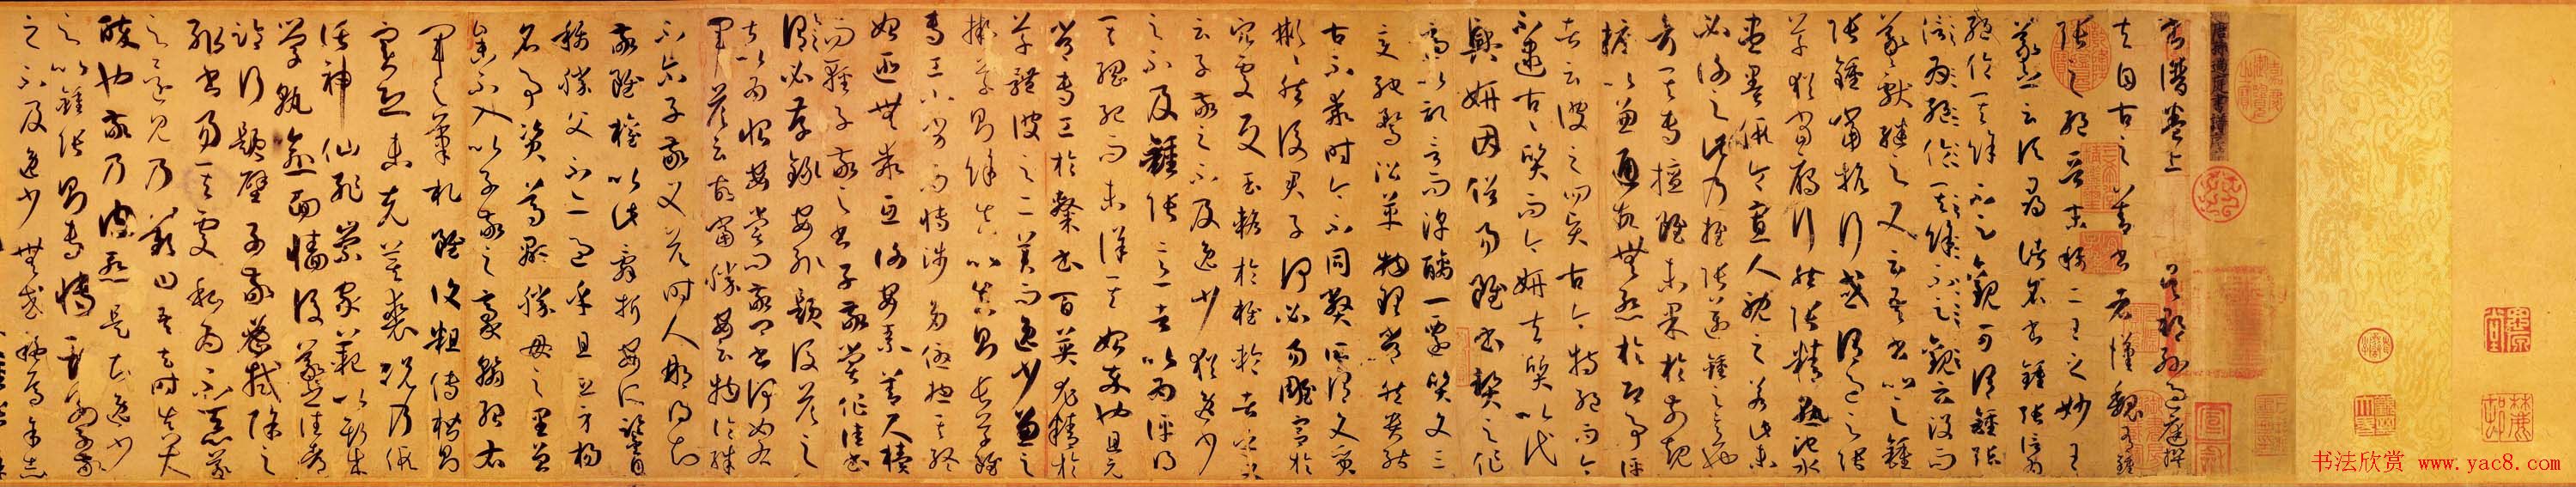 唐孫過庭書譜序
書譜卷上 吳郡孫過庭撰
夫自古之善書者漢魏有鍾
張之絕晉末稱二王之妙王
羲之云頃尋諸名書鍾張信為
絕倫其餘不足觀可謂鍾張
信為絕倫其餘不足觀云沒而
羲獻繼之又云吾書比之鍾
張鍾當抗行或謂過之張
草猶當雁行然張精熟池水
盡墨假令寡人耽之若此未
必謝之此乃推張邁鍾之意也
考其專擅雖未果於前規
摭以兼通故無慚於即事評
者云彼之四賢古今特絕而今
不逮古古質而今妍夫質以代
興妍因俗易雖書契之作
適以記言而淳醨一遷質文三
變馳騖沿革物理常然貴能
古不乖時今不同弊所謂文質
彬彬然後君子何必易雕宮於
穴處反玉輅於椎輪者乎又
云子敬之不及逸少猶逸少
之不及鍾張意者以為評得
其綱紀而未詳其始卒也且元
常專工於隸書百英尤精於
草體彼之二美而逸少兼之
擬草則餘真比真則長草雖
專工小劣而博涉多優總其終
始匪無乖互謝安素善尺牘
而輕子敬之書子敬嘗作佳書
與之謂必存錄安輒題後答之
甚以為恨安嘗問敬卿書何如右
軍答云故當勝安云物論殊
不爾子敬又答時人那得知
敬雖權以此辭折安所鑒自
稱勝父不亦過乎且立身揚
名事資尊顯勝母之里曾
參不入以子敬之豪翰紹右
軍之筆札雖復粗傳楷則
實恐未克箕裘況乃假
託神仙恥崇家範以斯成
學孰愈面牆後羲之往都
臨行題壁子敬密拭除之
輒書易其處私為不惡羲
之還見乃嘆曰吾去時真大
醉也敬乃內慚是知逸少
之比鍾張則專博斯別子敬
之不及逸少無或疑焉余志
书法欣赏 www.yac8.com